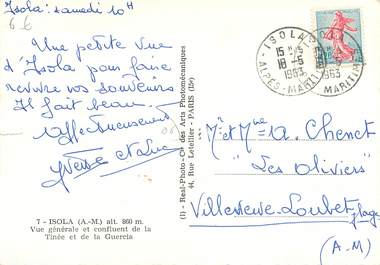 Isola : samedi 10H
6€
Une petite vue
d'Isola pour faire
revivre vos souvenirs
Il fait beau.
affectueusement
Yvette
7 - ISOLA (A.-M.) alt. 860 m.
Vue générale et confluent de la
Tinée et de la Guercia
(1) - Real-Photo - Cie des Arts Photomécaniques
44, Rue Letellier - PARIS (15e)
ISOLA
15 H
18 -5
1963
ALPES-MARITIMES
1963
MARITIM
Mr et Mme A. Chenet
"Les Oliviers"
Villeneuve-Loubet plage
(A-M)